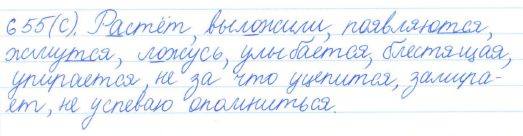 655(с). Растёт, выложили, появляются,
жмутся, ложусь, улыбается, блестящая,
упирается, не за что уцепится, замира-
ет, не успеваю опомниться.